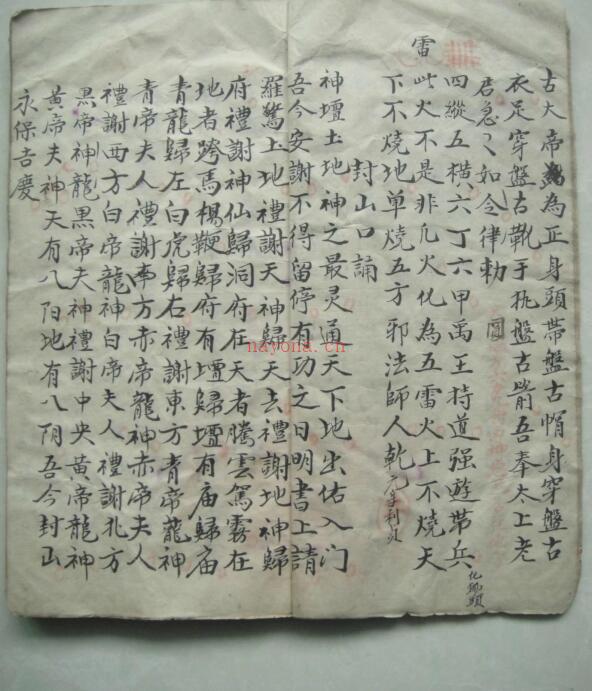 古大帝為正身頭帶盤古帽身穿盤古
衣足穿盤古靴手执盤古箭吾奉太上老
君急〻如令律勅
四縱五橫六丁六甲禹王持道强遊带兵
雷
此火不是非凡火化為五雷火上不燒天
下不燒地单燒五方邪法師人乾元亨利貞
封山口誦
神壇土地神之最灵通天下地出佑入门
吾今安謝不得留停有功之日明書上請
羅驚土地禮謝天神歸天去禮謝地神歸
府禮謝神仙歸洞府在天者騰雲駕霧在
地者跨馬楊鞭歸府有壇歸壇有庙歸庙
青龍歸左白虎歸右禮謝東方青帝龍神
青帝夫人禮謝南方赤帝龍神赤帝夫人
禮謝西方白帝龍神白帝夫人禮謝北方
黑帝神龍黑帝夫神禮謝中央黄帝龍神
黄帝夫神天有八阳地有八阴吾今封山
永保吉慶
nayona.cn